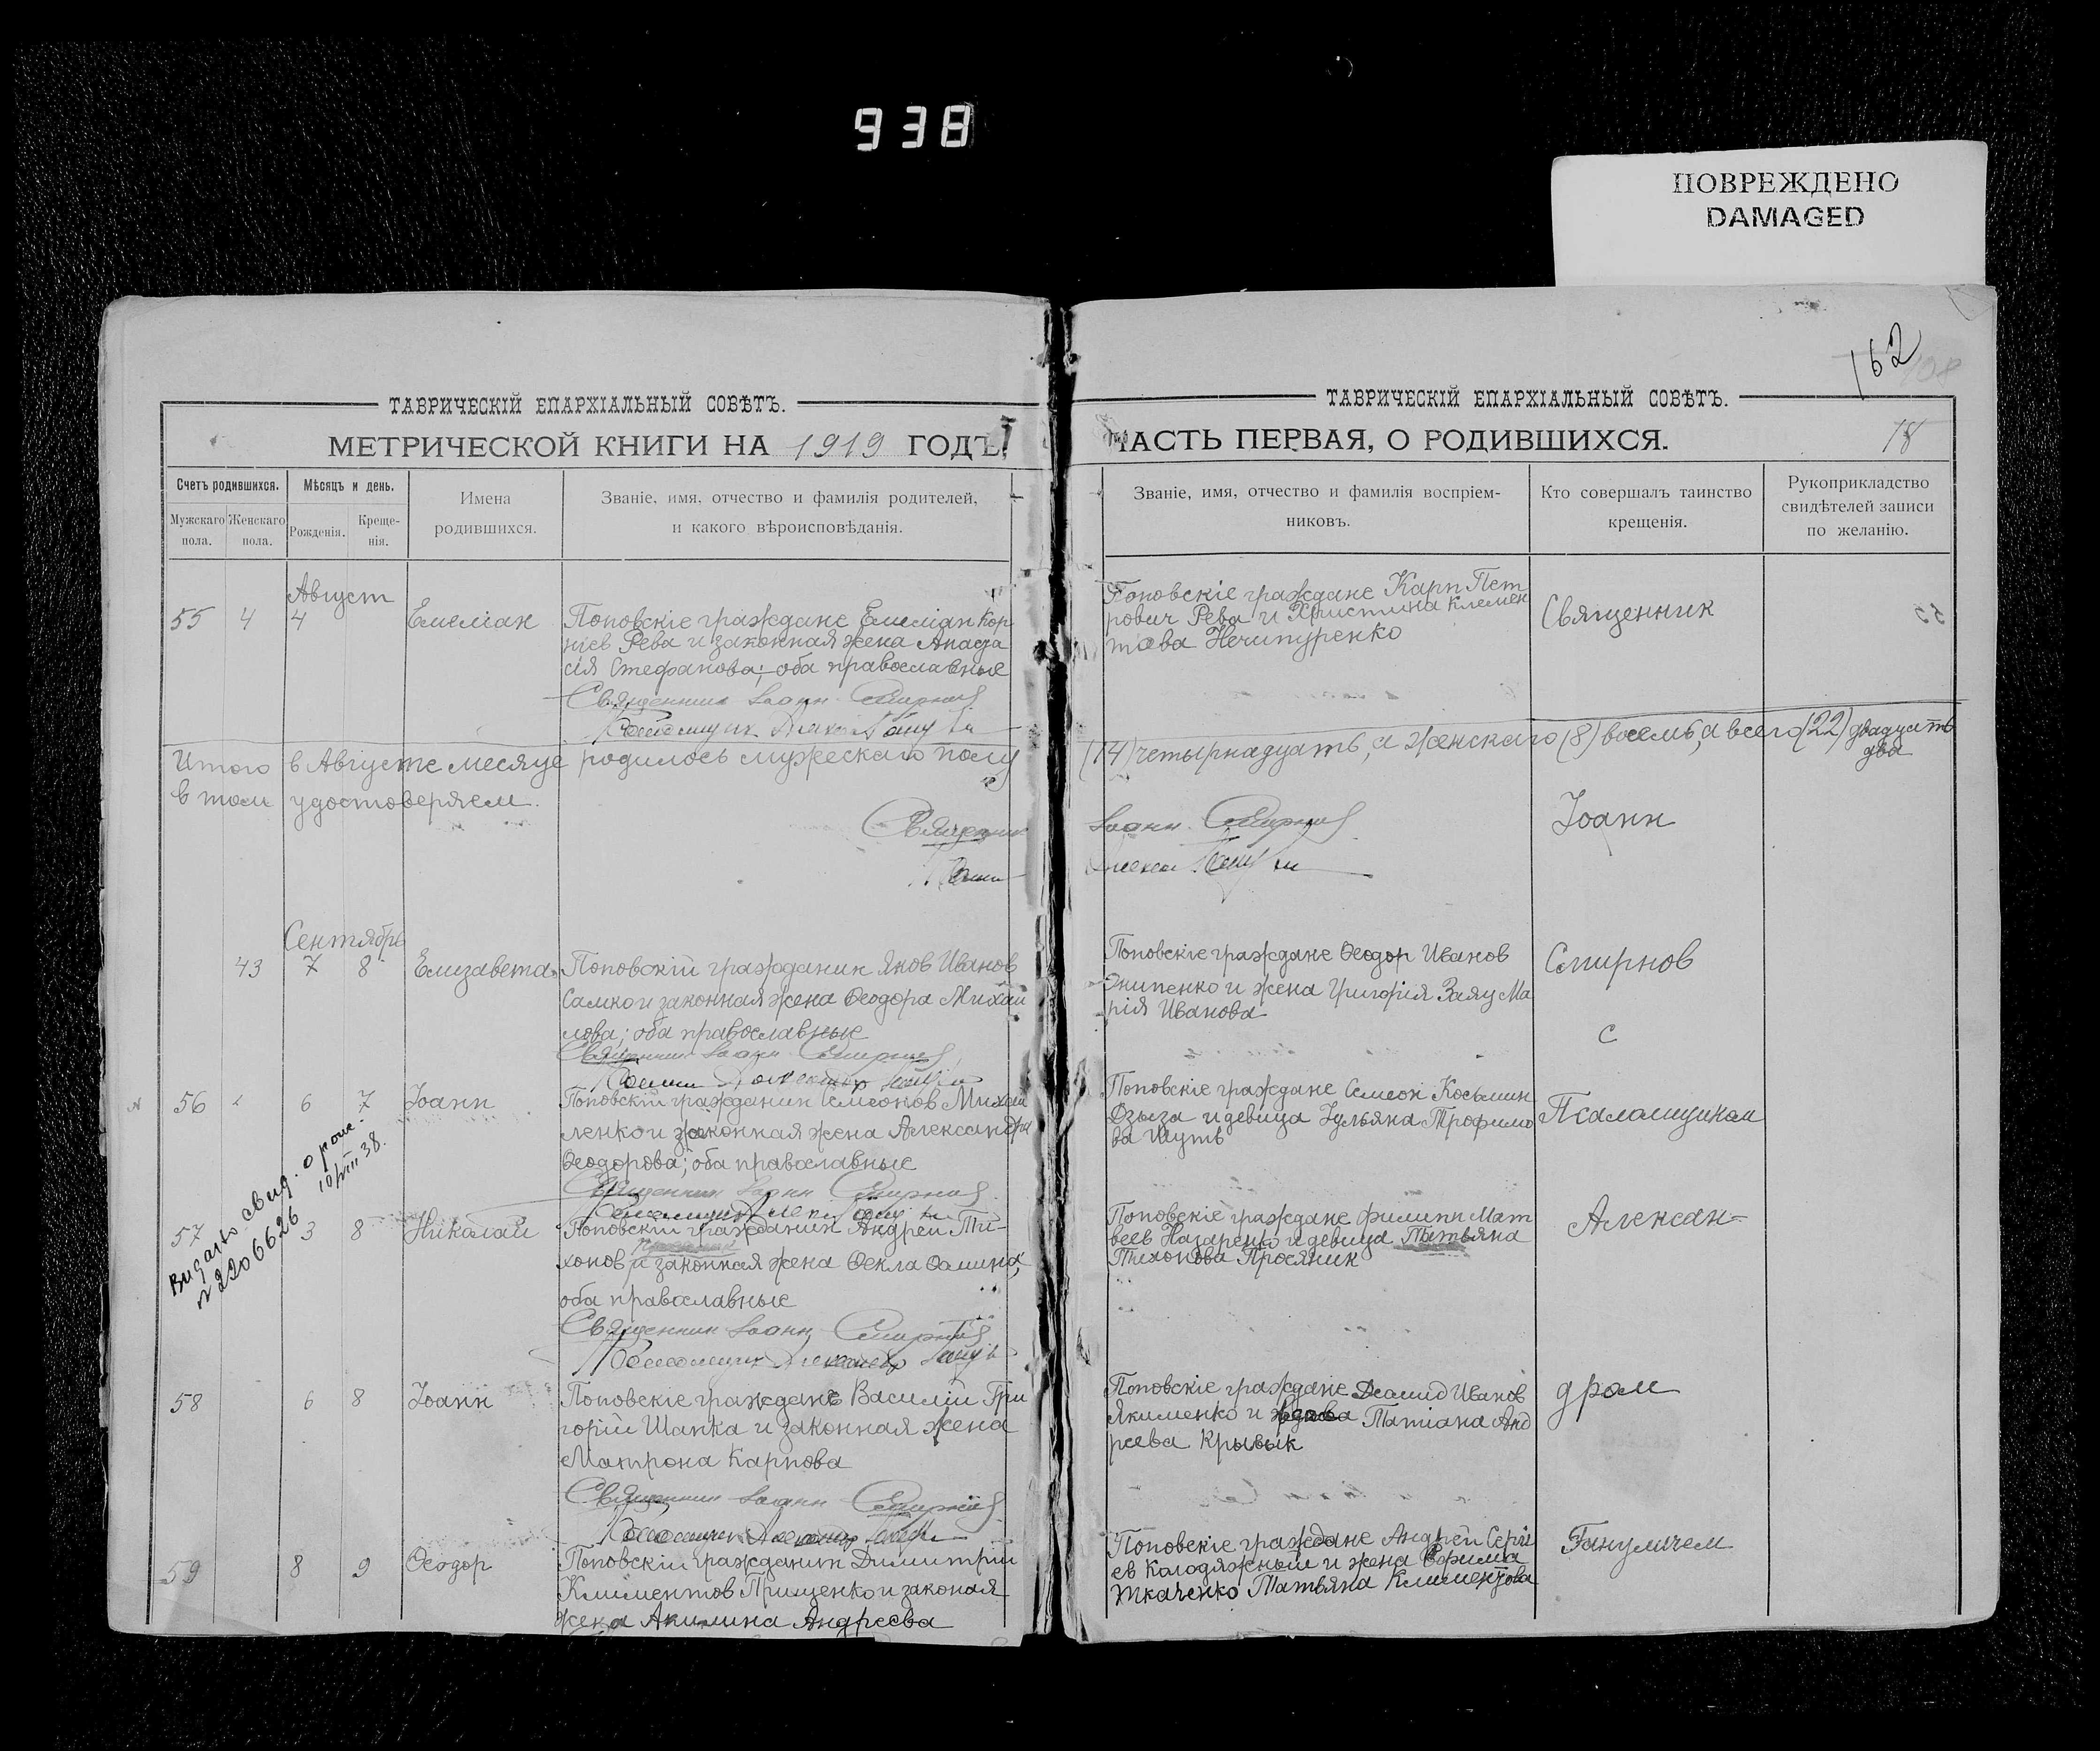 938
ПОВРЕЖДЕНО
DAMAGED
162
108
ТАВРИЧЕСКІЙ ЕПАРХІАЛЬНЫЙ СОВѢТЪ.
МЕТРИЧЕСКОЙ КНИГИ НА 1919 ГОДЪ,
Счетъ родившихся.
Мѣсяцъ и день.
Мужскаго пола.
Женскаго пола.
Рожденія.
Креще-
нія.
Имена
родившихся.
Званіе, имя, отчество и фамилія родителей,
и какого вѣроисповѣданія.
Август
55 4 4 Емеліан Поповскіе граждане Емеліан Кор
ніев Рева и законная жена Анаста
сія Стефанова; оба православные
Священник Іоанн Смирнов
Итого в Августе месяце родилось мужескаго полу
в том удостоверяем.
Священник
Сентябрь
43 7 8 Елизавета Поповскій гражданин Яков Иванов
Самко и законная жена Ѳеодора Михаи
лова; оба православные
Священник Іоанн Смирнов
56 6 7 Іоанн Поповскій гражданин Симеонов Михай
ленко и законная жена Александра
Ѳеодорова; оба православные
Священник Іоанн Смирнов
Видано свид. о рожд.
10/VIII 38.
№ 2206626
57 3 8 Николай Поповскій гражданин Андрей Ти-
хонов и законная жена Ѳекла Ѳомина,
оба православные
Священник Іоанн Смирнов
58 6 8 Іоанн Поповскіе граждане Василій Гри
горій Шапка и законная жена
Матрона Карпова
Священник Іоанн Смирнов
59 8 9 Ѳеодор Поповскій гражданин Димитрій
Климентов Прищенко и законая
жена Акилина Андреева
ТАВРИЧЕСКІЙ ЕПАРХІАЛЬНЫЙ СОВѢТЪ.
ЧАСТЬ ПЕРВАЯ, О РОДИВШИХСЯ.
18
Званіе, имя, отчество и фамилія воспріем-
никовъ.
Кто совершалъ таинство
крещенія.
Рукоприкладство
свидѣтелей записи
по желанію.
Поповскіе граждане Карп Пет
рович Рева и Христина Клемен
това Нечипуренко
Священник
(14) четырнадцать, а женскаго (8) восемь, а всего (22) двадцать
два
Іоанн Смирнов
Іоанн
Поповскіе граждане Ѳеодор Иванов
Книпенко и жена Григорія Заяц Ма
рія Иванова
Смирнов
с
Поповскіе граждане Симеон Косьмин
Дзыза и девица Іульяна Трофимо
ва Шуть
Псаломщиком
Поповскіе граждане Филипп Мат
веев Назаренко и девица Татьяна
Тихонова Просяник
Алексан=
Поповскіе граждане Демид Иванов
Якименко и вдова Татіана Анд
реева Крывык
дром
Поповскіе граждане Андрей Сергі
ев Колодяжный и жена Ефима
Ткаченко Татьяна Климентова